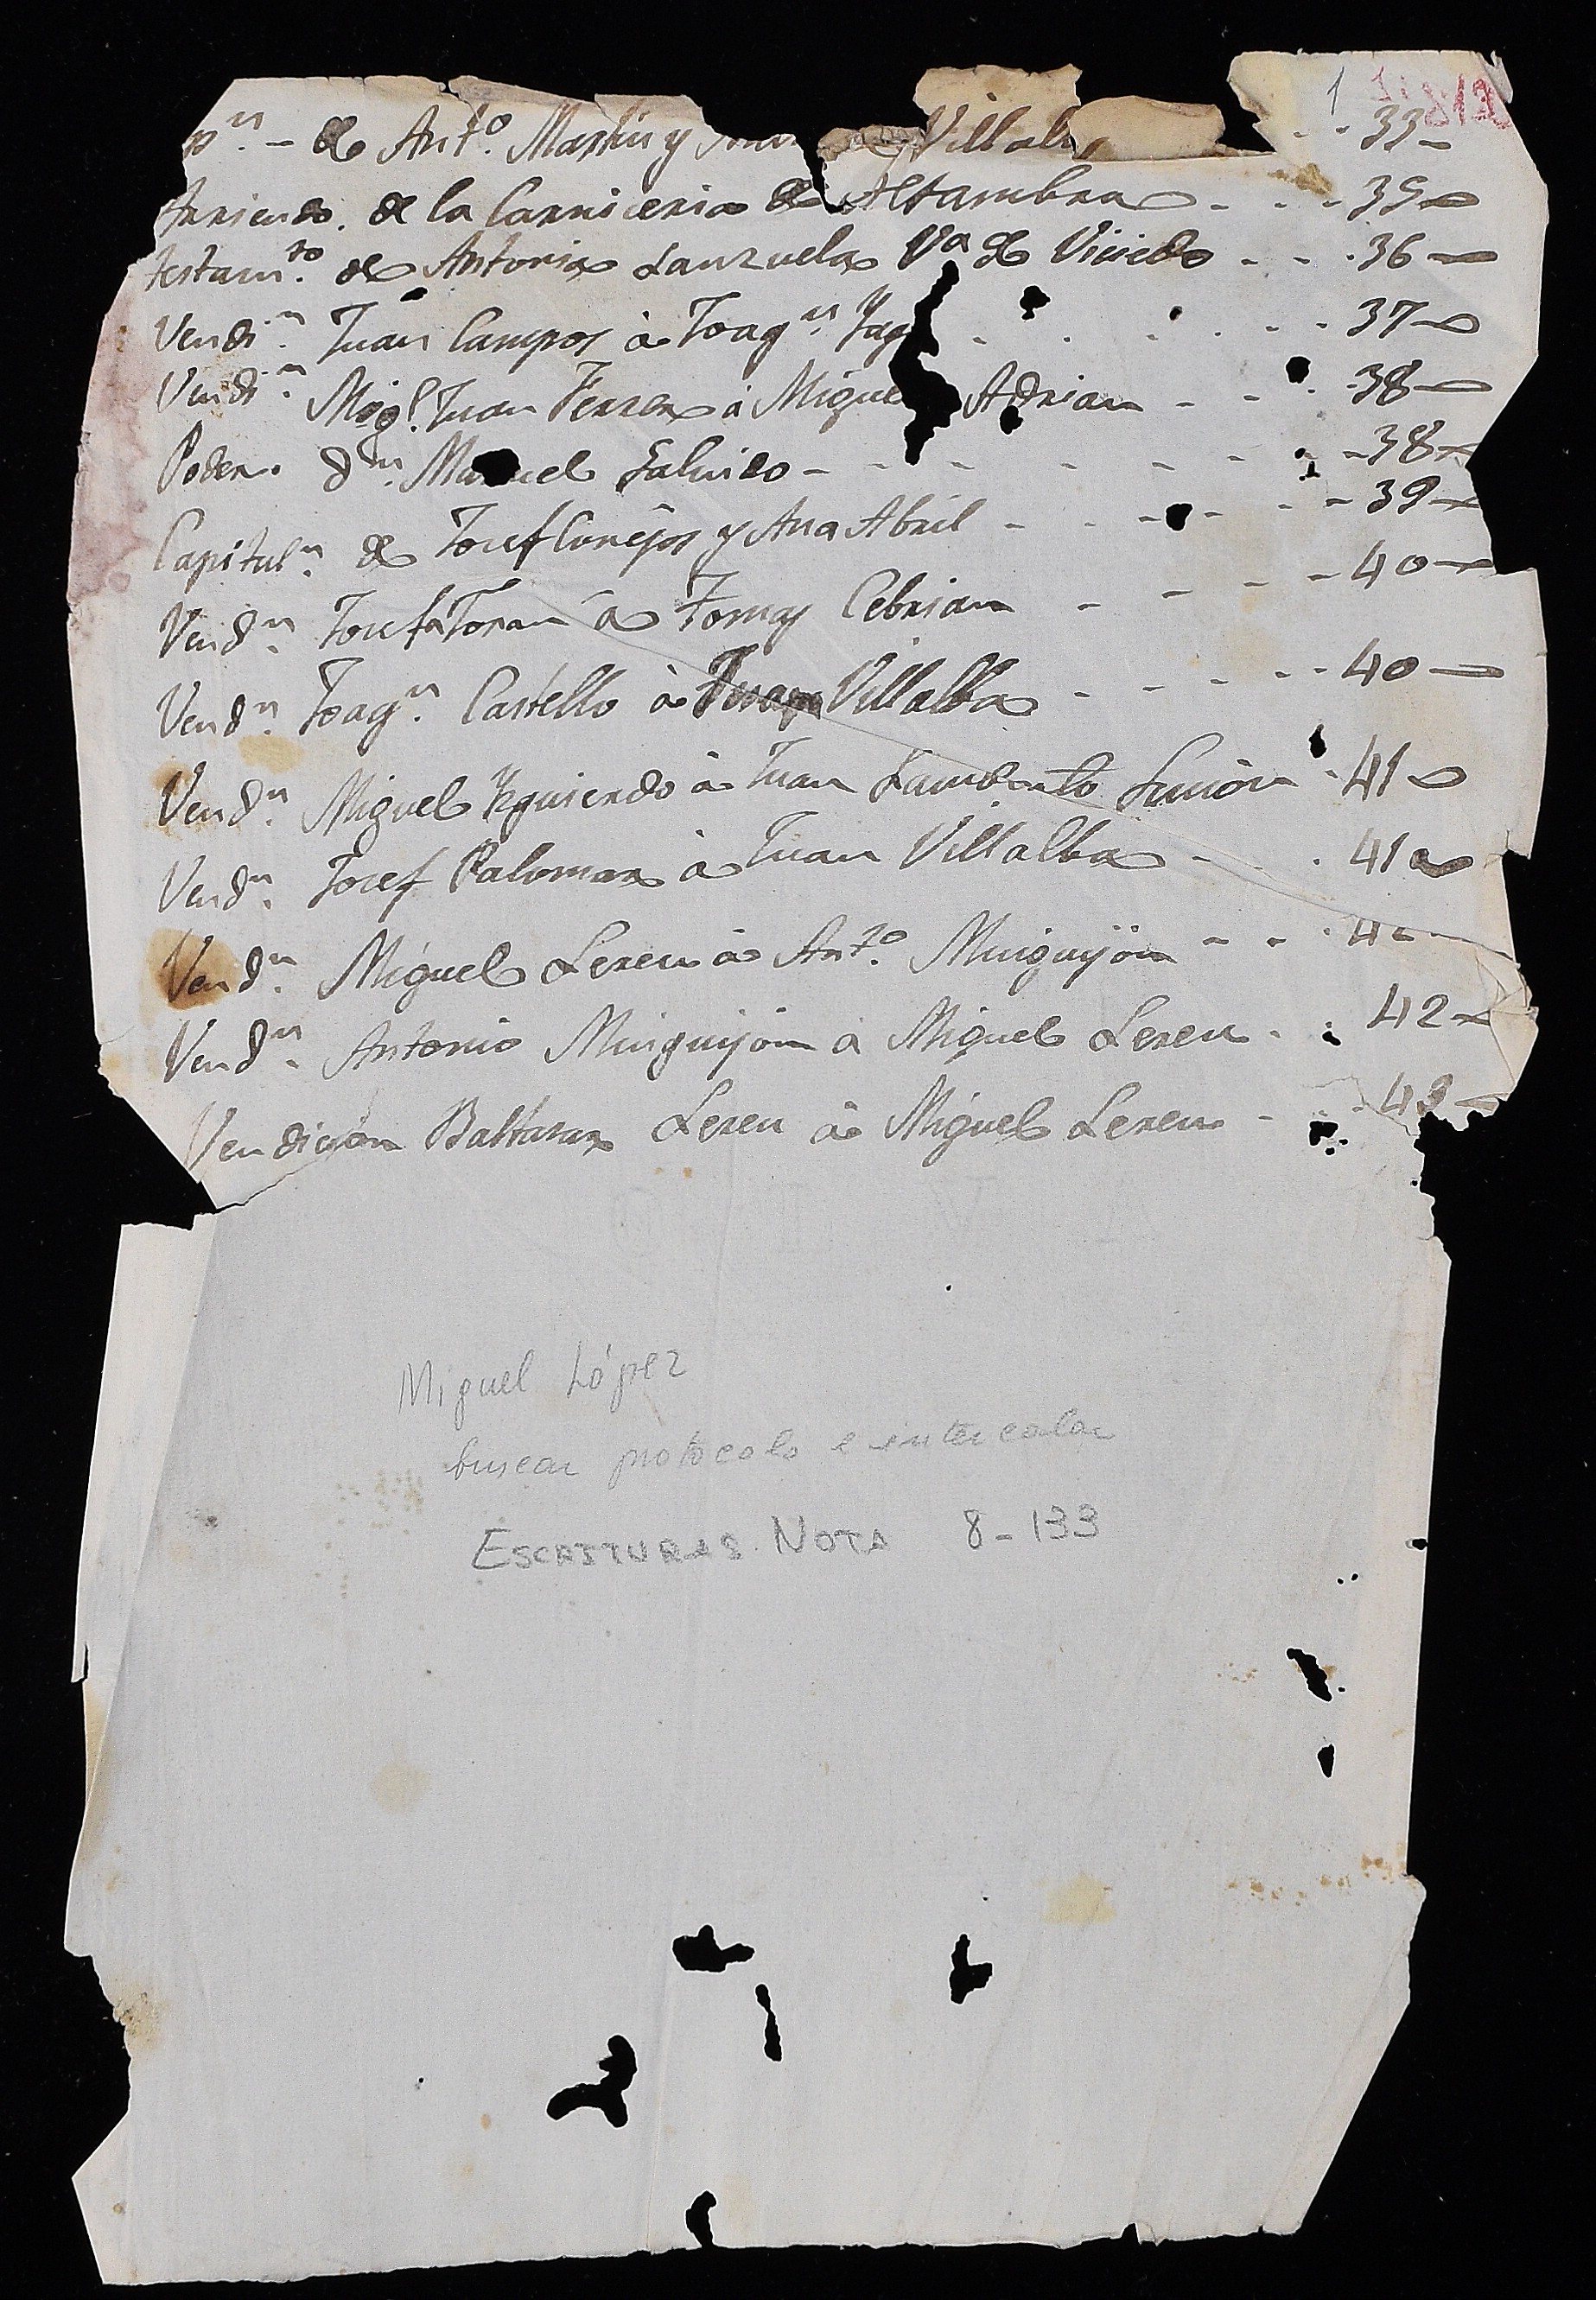 1
pⁿ. - de Antº. Martin y Villalb - - 33 -
Arriendo. de la Carniceria de Alfambra - - - 35
testamᵗᵒ. de Antonia Lanzuela Vª de Vicedo - - . 36
Vendiⁿ. Juan Campos à Joaqⁿ. - - - 37
Vendiⁿ. Migˡ. Juan Ferrer à Miguel Adrian - - . 38
Poder. dⁿ. Manuel Galindo - - - - - - 38
Capitulⁿ. de Josef Conejos y Ana Abril - - - - - 39
Vendⁿ. Josefa Toran à Tomas Cebrian - - - - 40
Vendⁿ. Joaqⁿ. Castello à Juan Villalba - - - - 40
Vendⁿ. Miguel Yzquierdo à Juan Lamberto - 41
Vendⁿ. Josef Palomar à Juan Villalba - - . 41
Vendⁿ. Miguel Lereu à Antº. Minguijon - - .
Vendⁿ. Antonio Minguijon à Miguel Lereu . . 42
Vendicion Baltasar Lereu à Miguel Lereu - - - 43
Miguel López
buscar protocolo e intercalar
ESCRITURAS. NOTA 8-133